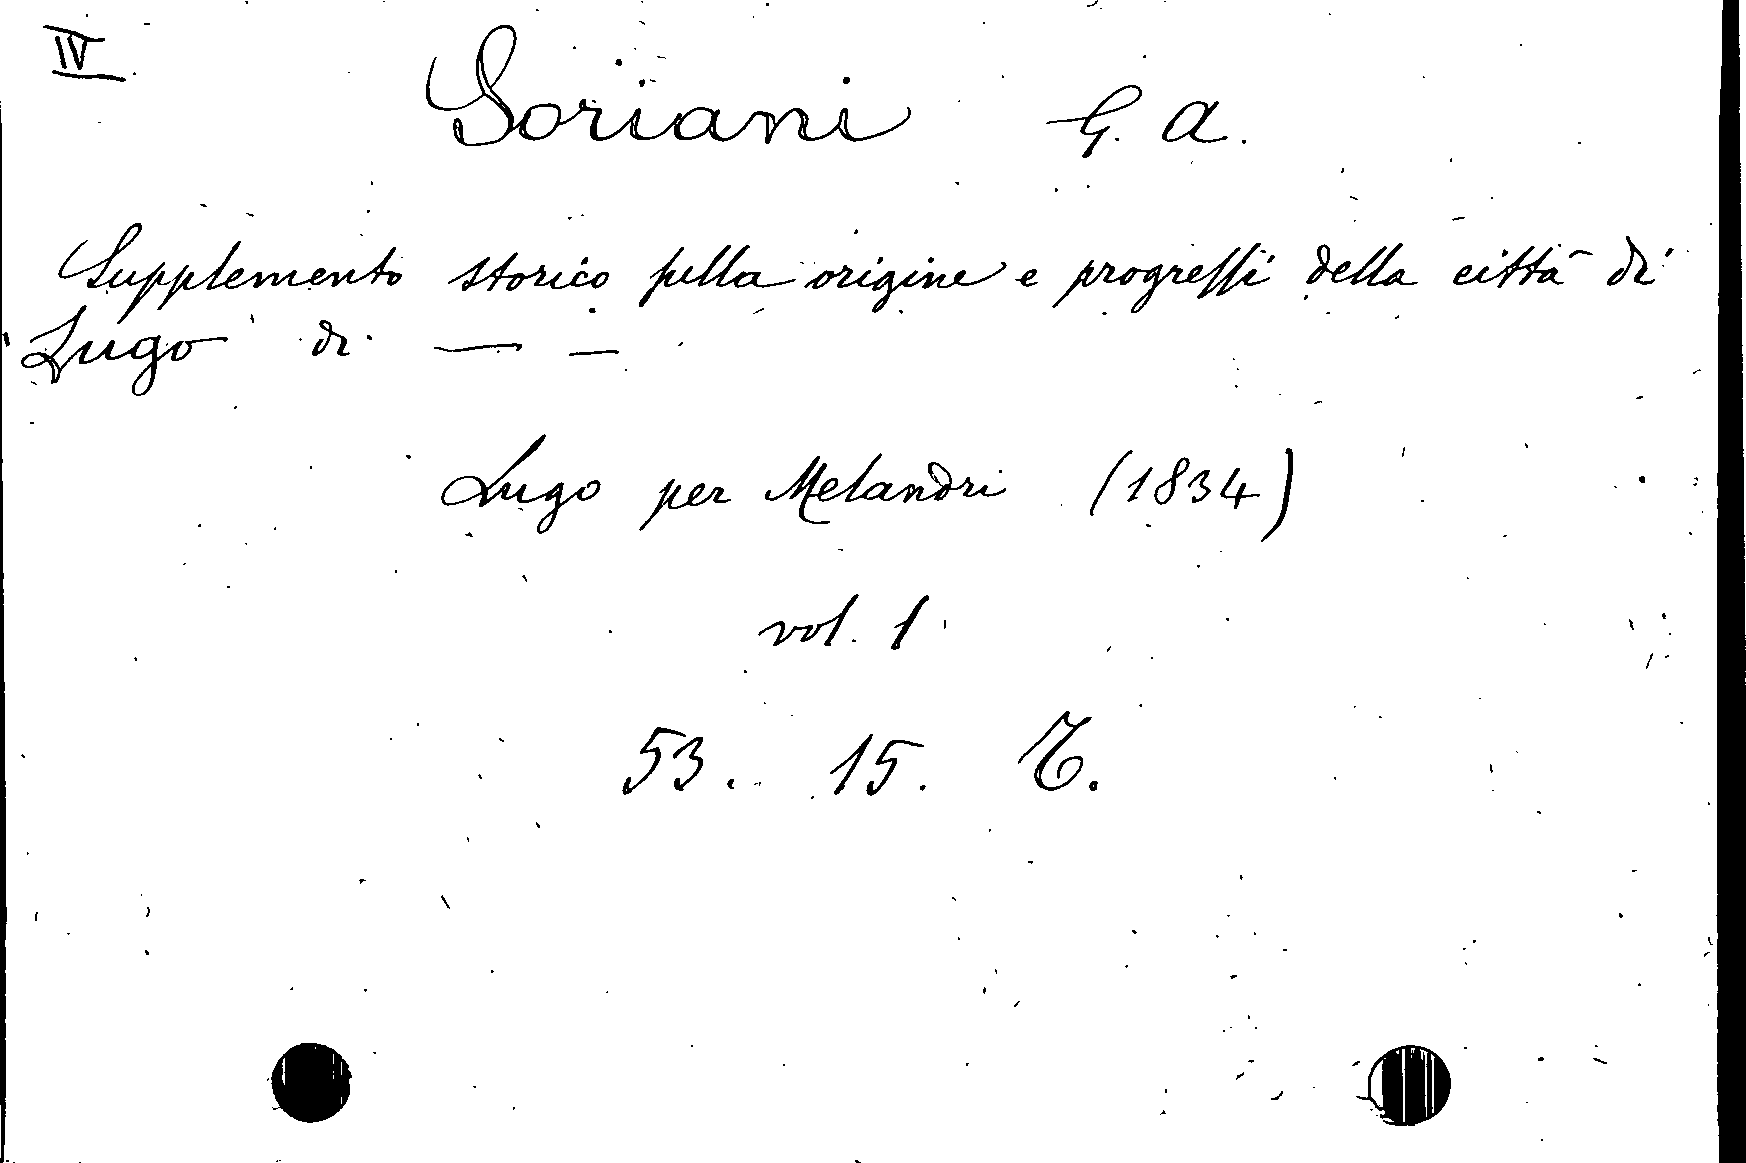 IV
Soriani G. A.
Supplemento storico sulla origine e progressi della città di
Lugo di — —
Lugo per Melandri (1834)
vol. 1
53. 15. T.